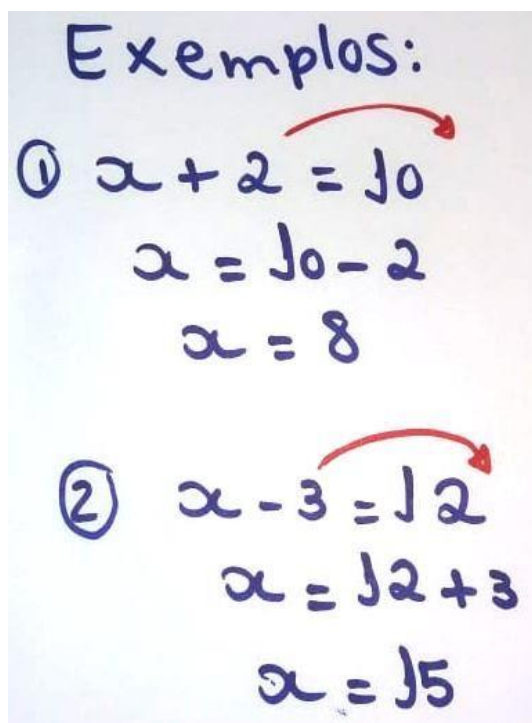 Exemplos:
① x + 2 = 10
x = 10 - 2
x = 8
② x - 3 = 12
x = 12 + 3
x = 15